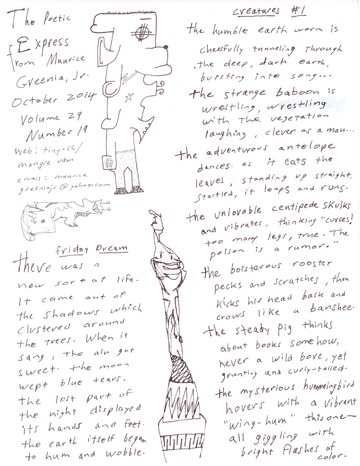 The Poetic
Express
from Maurice
Greenia, Jr.
October 2014
Volume 29
Number 19
web: tiny.cc/
mangre udm
email: maurice
greeniajr@yahoo.com
Friday Dream
There was a
new sort of life.
It came out of
the shadows which
clustered around
the trees. When it
sang, the air got
sweet. the moon
wept blue tears.
the lost part of
the night displayed
its hands and feet.
the earth itself began
to hum and wobble.
Creatures #1
the humble earth worm is
cheerfully tunneling through
the deep, dark earth,
bursting into song...
the strange baboon is
wrestling, wrestling
with the vegetation
laughing, clever as a man...
the adventurous antelope
dances as it eats the
leaves, standing up straight.
startled, it loops and runs.
the unlovable centipede skulks
and vibrates, thinking "curses!
too many legs, true. The
poison is a rumor."
the boisterous rooster
pecks and scratches, then
kicks his head back and
crows like a banshee.
the steady pig thinks
about books somehow,
never a wild bore, yet
grunting and curly-tailed.
the mysterious hummingbird
hovers with a vibrant
"wing-hum" this one—
all giggling with
bright flashes of
color.